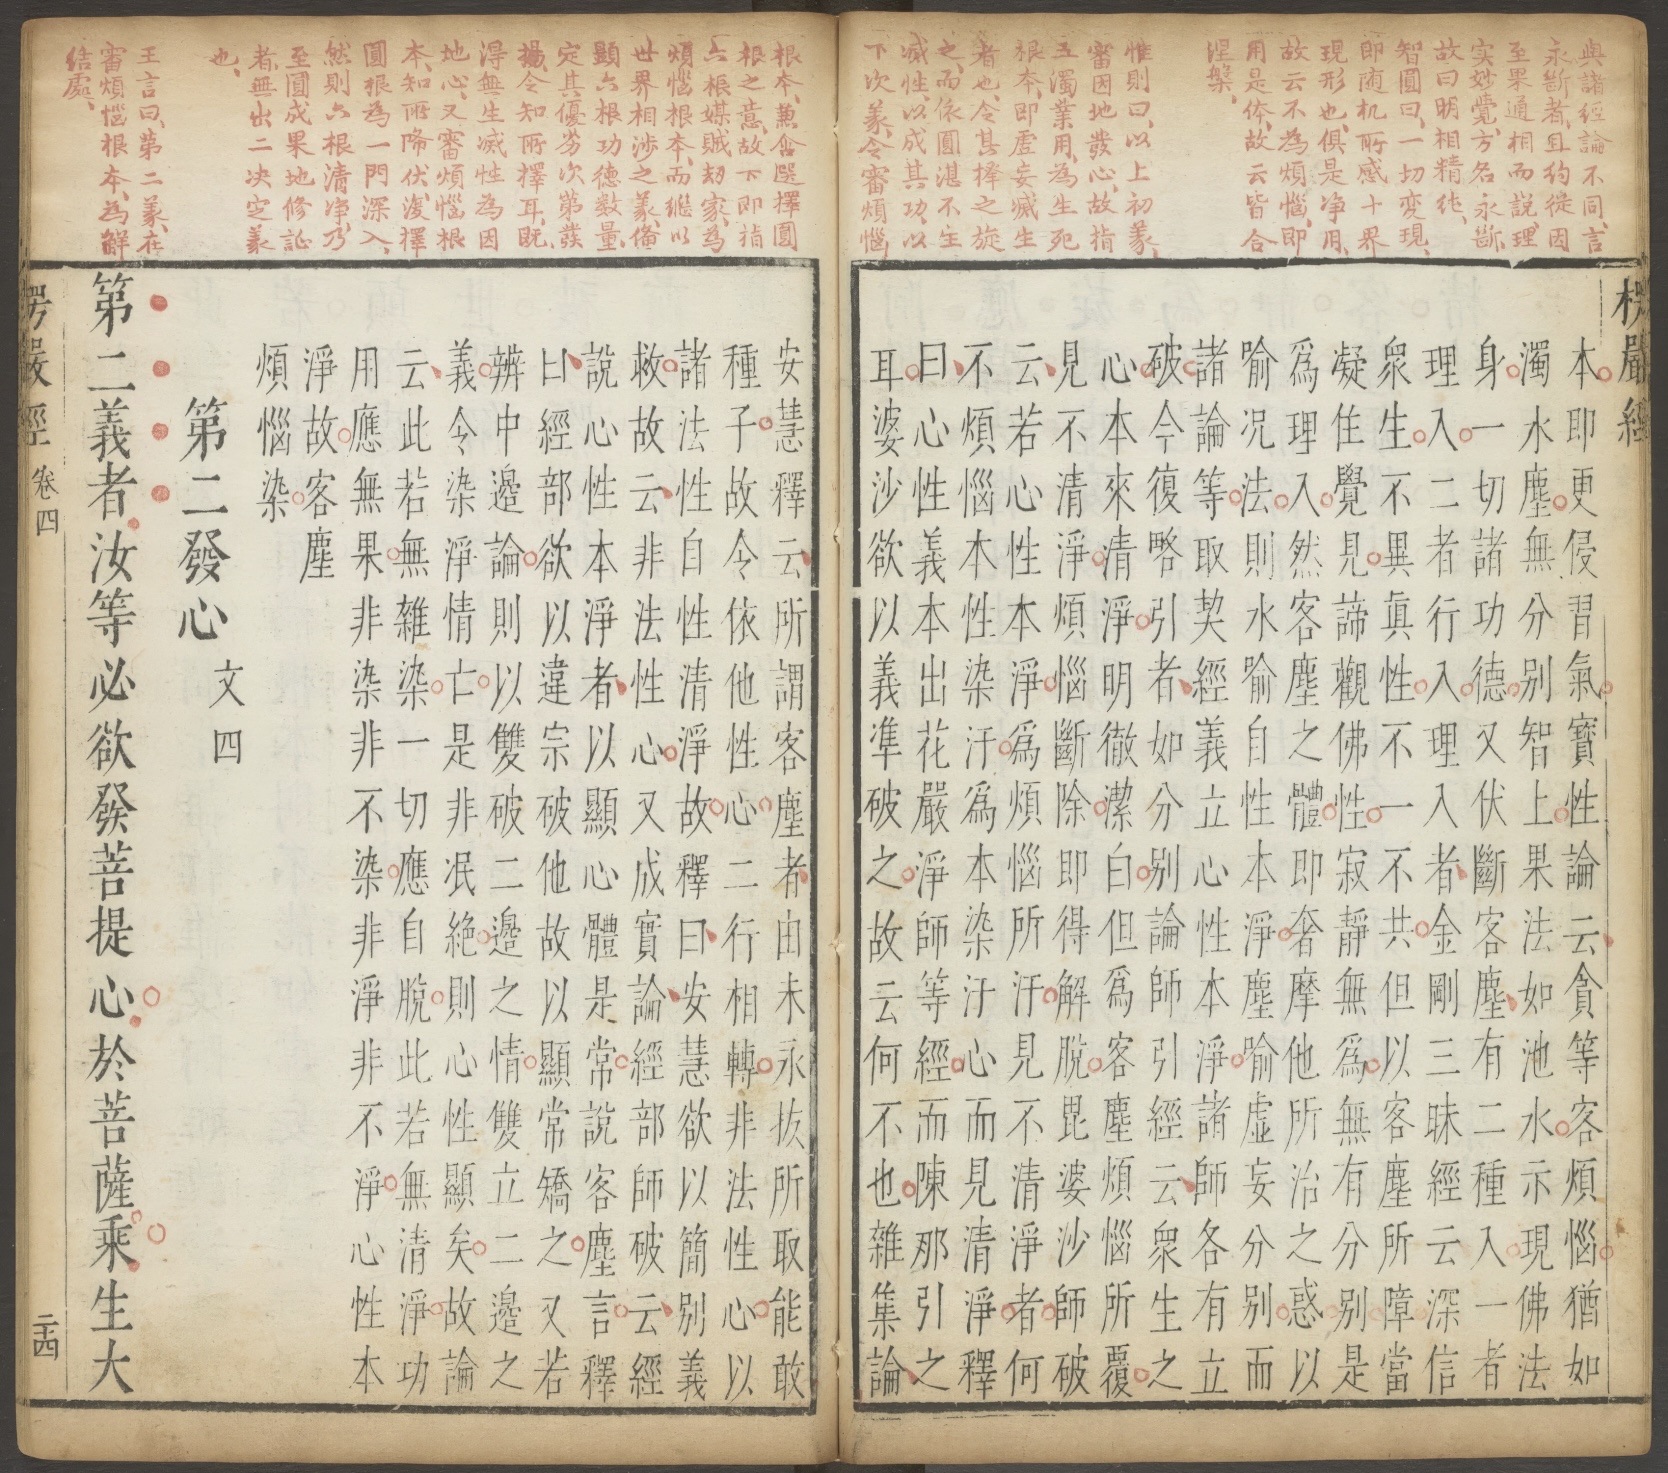 與諸經論不同言
永斷者且約從因
至果通相而說理
實妙覺方名永斷
故曰明相精純
智圓曰一切變現
即随机所感十界
現形也俱是净用
故云不為煩惱即
用是体故云皆合
涅槃
惟則曰以上初義
審因地發心故指
五濁業用為生死
根本即虛妄滅生
者也令其擇之旋
之而依圓湛不生
滅性以成其功以
下次義令審煩惱
楞嚴經
本即更侵習氣寶性論云貪等客煩惱猶如
濁水塵無分别智上果法如池水示現佛法
身一切諸功德又伏斷客塵有二種入一者
理入二者行入理入者金剛三昧經云深信
衆生不異眞性不一不共但以客塵所障當
凝住覺見諦觀佛性寂靜無爲無有分别是
爲理入然客塵之體即奢摩他所治之惑以
喻况法則水喻自性本淨塵喻虛妄分别而
諸論等取契經義立心性本淨諸師各有立
破今復略引者如分别論師引經云衆生之
心本來清淨明徹潔白但爲客塵煩惱所覆
見不清淨煩惱斷除即得解脫毘婆沙師破
云若心性本淨爲煩惱所汙見不清淨者何
不煩惱本性染汙爲本染汙心而見清淨釋
曰心性義本出花嚴淨師等經而陳那引之
耳婆沙欲以義準破之故云何不也雜集論
根本兼含選擇圓
根之意故下即指
六根媒賊刼家為
煩惱根本而繼以
世界相涉之義備
顯六根功德数量
定其優劣次第發
揚令知所擇耳既
淂無生滅性為因
地心又審煩惱根
本知所降伏復擇
圓根為一門深入
然則六根清净乃
至圓成果地修証
者無出二决定義
也
王言曰第二義在
審煩惱根本為觧
结處
安慧釋云所謂客塵者由未永抜所取能敢
種子故令依他性心二行相轉非法性心以
諸法性自性清淨故釋曰安慧欲以簡别義
救故云非法性心又成實論經部師破云經
說心性本淨者以顯心體是常說客塵言釋
曰經部欲以違宗破他故以顯常矯之又若
辨中邊論則以雙破二邊之情雙立二邊之
義今染淨情亡是非泯絶則心性顯矣故論
云此若無雜染一切應自脫此若無清淨功
用應無果非染非不染非淨非不淨心性本
淨故客塵
煩惱染
第二發心文四
第二義者汝等必欲發菩提心於菩薩乘生大
楞嚴經 卷四 二十四